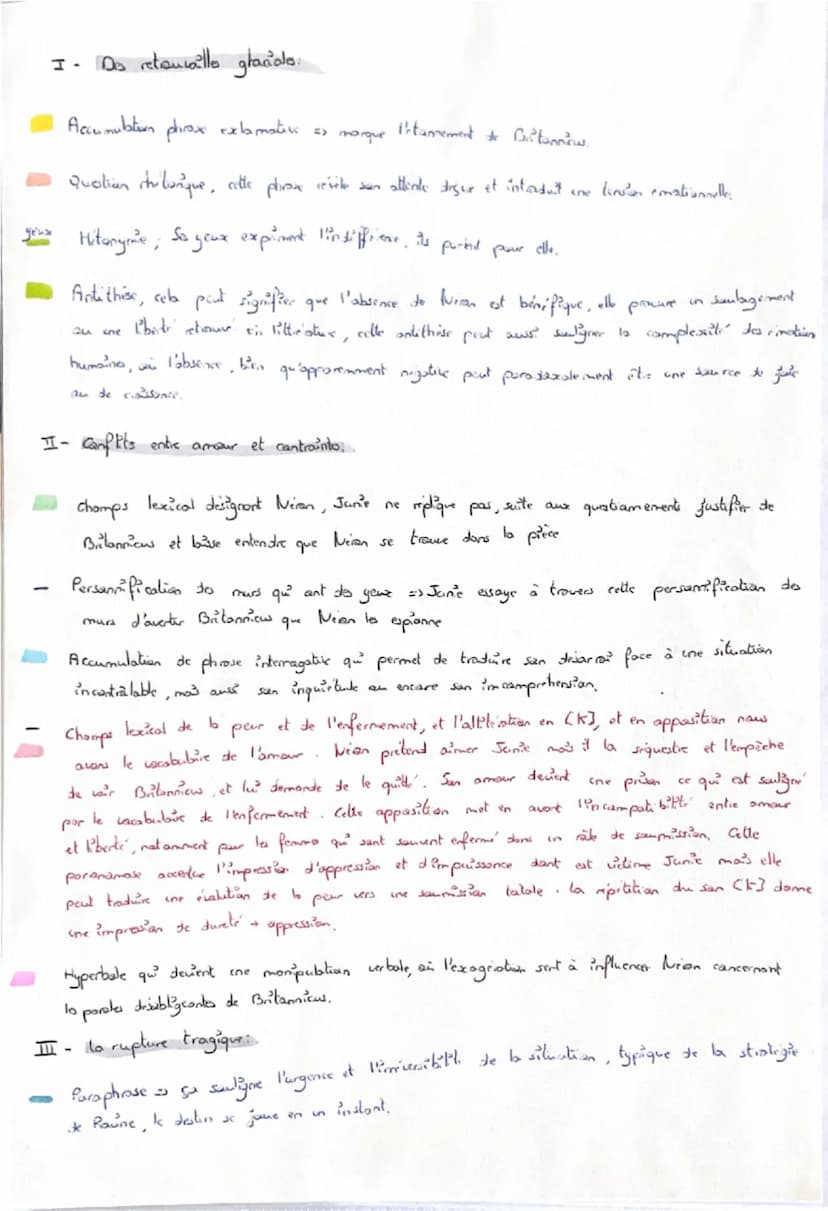 I - Des retrouvailles glaciales:
Accumulation phrase exclamative => marque l'étonnement de Britannicus.
Question rhétorique, cette phrase révèle son attente déçue et introduit une tension émotionnelle.
yeux
Métonymie, Ses yeux expriment l'indifférence, ils parlent pour elle.
Antithèse, cela peut signifier que l'absence de Néron est bénéfique, elle procure un soulagement
ou une liberté retrouvé en littérature, cette antithèse peut aussi souligner la complexité des émotion
humaines, où l'absence, bien qu'apparemment négative peut paradoxalement être une source de joie
ou de
II - Conflits entre amour et contrainte:
Champs lexical désignant Néron, Junie ne réplique pas, suite aux questionements justifier de
Britannicus et laisse entendre que Néron se trouve dans la pièce
- Personnification des murs qui ont des yeux => Junie essaye à travers cette personnification des
murs d'avertir Britannicus que Néron les espionne
Accumulation de phrase interrogative qui permet de traduire son désarroi face à une situation
incontrôlable, mais aussi son inquiétude ou encore son imcomprehension.
- Champs lexical de la peur et de l'enfermement, et l'allitération en [k], et en opposition nous
avons le vocabulaire de l'amour. Néron prétend aimer Junie mais il la séquestre et l'empêche
de voir Britannicus, et lui demande de le quitté. Son amour devient une prison ce qui est souligné
par le vocabulaire de l'enfermement. Cette opposition met en avant l'incompatibilité entre amour
et liberté, notamment pour les femmes qui sont souvent enfermé dans un rôle de soumission. Cette
paronomase accentue l'impression d'oppression et d'impuissance dont est victime Junie mais elle
peut traduire une évolution de la peur vers une soumission totale. La répétition du son [k] donne
une impression de dureté + oppression.
Hyperbole qui devient une manipulation verbale, où l'exagération sert à influencer Néron concernant
les paroles désobligeantes de Britannicus.
III - La rupture tragique:
Paraphrase => ça souligne l'urgence et l'irréversibilité de la situation, typique de la stratégie
de Racine, le destin se joue en un instant.